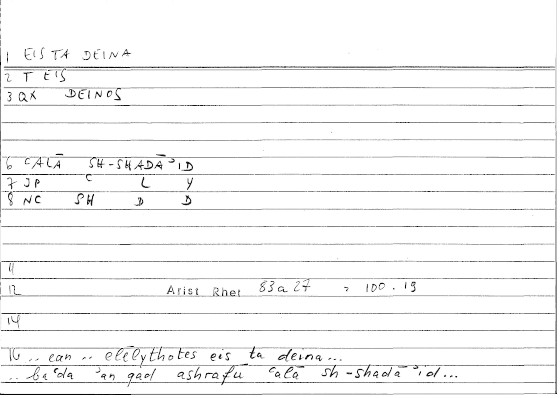 1 EIS TA DEINA
2 T EIS
3 QX DEINOS
6 ʿALĀ SH-SHADĀʾID
7 JP ʿ L Y
8 NC SH D D
11
12 Arist Rhet 83a27 = 100.19
14
16 .. ean .. elēlythotes eis ta deina...
.. baʿda ʾan qad ashrafū ʿalā sh-shadāʾid...